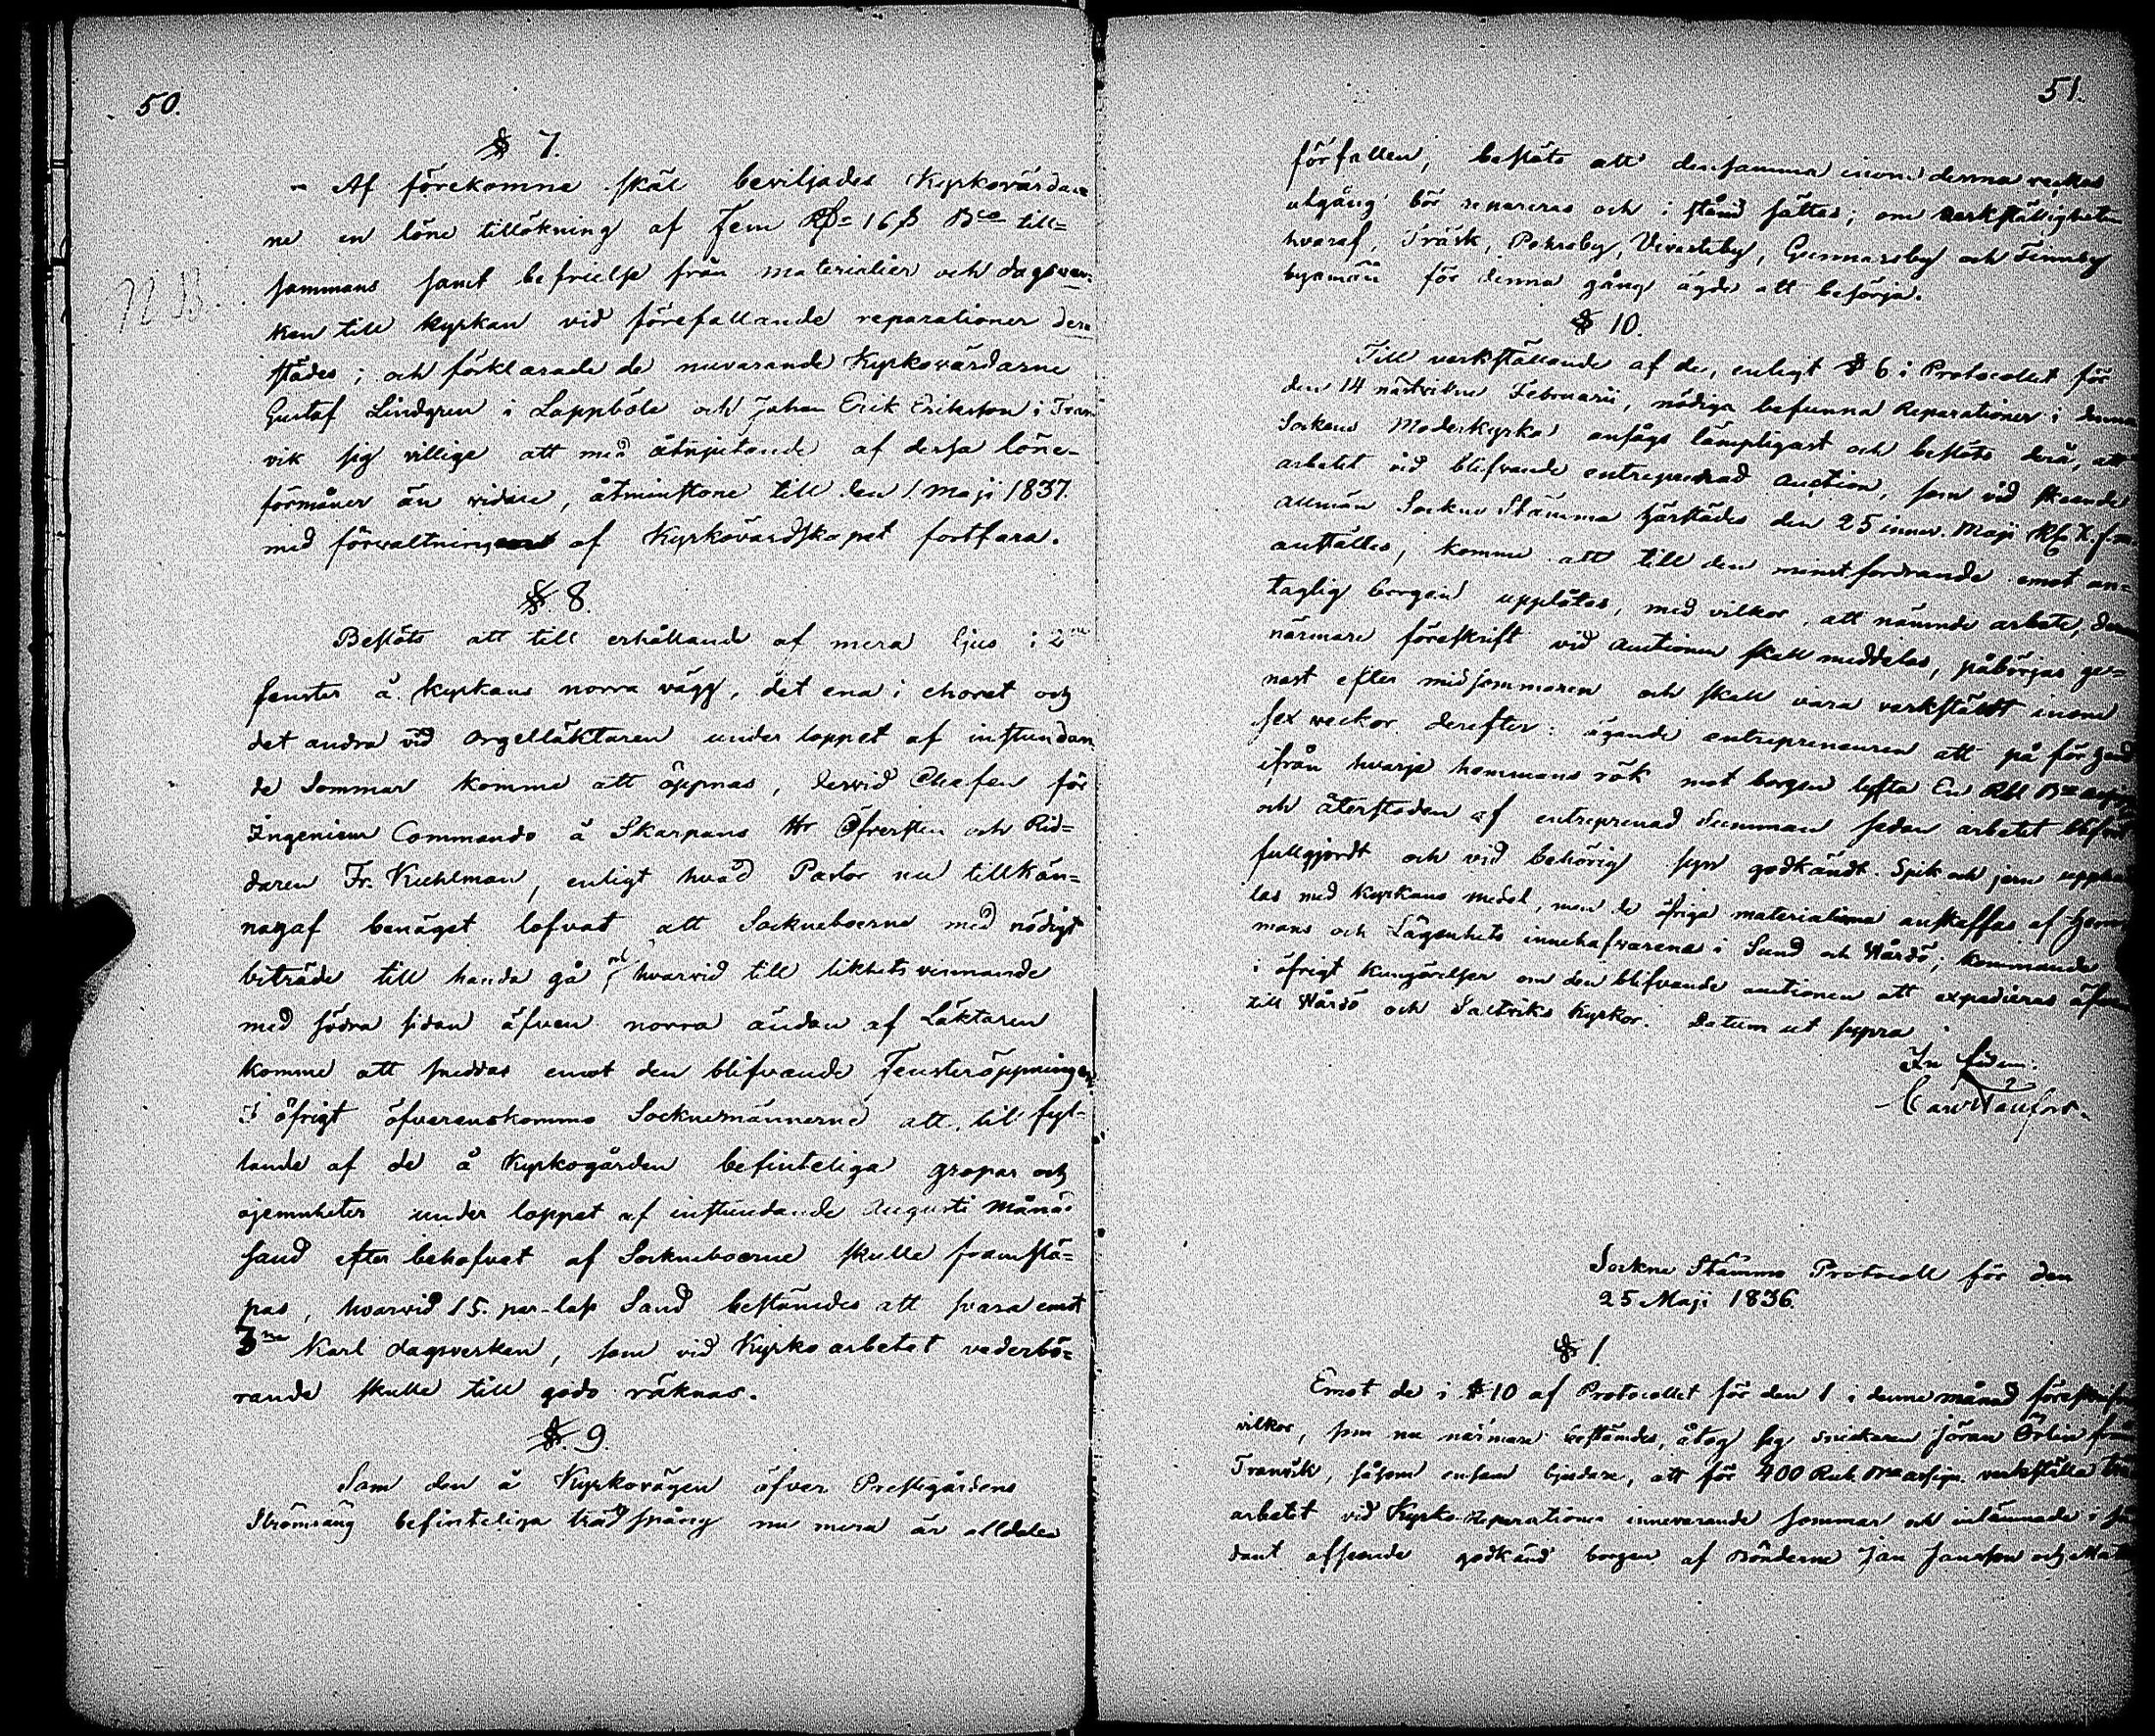 50.
§ 7.
Af förekomne skäl beviljades Kyrkovärdar
ne en löne tillökning af Fem R 16 ß Bco till=
sammans samt befrielse från materialier och dagsver=
ken till kyrkan vid förefallande reparationer der=
städes; och förklarade de nuvarande Kyrkovärdarne
Gustaf Lindgren i Lappböle och Johan Erik Eriksson i Tran
vik sig villige att med åtnjutande af dessa löne-
förmåner än vidare, åtminstone till den 1. Maji 1837.
med förvaltningen af Kyrkovärdskapet fortfara.
N.B.
§. 8.
Beslöts att till erhållande af mera ljus i 2ne
fenster å kyrkans norra vägg, det ena i choret och
det andra vid Orgelläktaren under loppet af instundan
de Sommar komme att öppnas, dervid Chefen för
Ingenieur Commando å Skarpans Hr Öfversten och Rid=
daren Fr. Kuhlman, enligt hvad Pastor nu tillkän=
nagaf benäget lofvat att Sockneboerne med nödigt
biträde till handa gå och hvarvid till likhets vinnande
med södra sidan äfven norra ändan af Läktaren
komme att sneddas emot den blifvande Fensteröppningen
I öfrigt öfverenskommo Socknemännerne att till fyl-
lande af de å Kyrkogården befinteliga gropar och
ojemnheter under loppet af instundande Augusti Månad
sand efter behofvet af Sockneboerne skulle framslä=
pas, hvarvid 15. par-lass Sand bestämdes att svara emot
3ne Karl dagsverken, som vid Kyrko arbetet vederbö=
rande skulle till godo räknas.
§. 9.
Som den å Kyrkovägen öfver Prestegårdens
Strömsäng befinteliga träd spång nu mera är alldeles
51.
förfallen, beslöts att densamma inom denna veckas
utgång bör repareras och i stånd sättas; om verkställigheten
hvaraf, Träsk, Pohrsby, Vivasteby, Gunnarsby och Finnby
byamän för denna gång ägde att besörja.
§ 10.
Till verkställande af de, enligt § 6 i Protocollet för
den 14 nästvikne Februarii, nödiga befunna Reparationer i denna
Sockens Moderkyrka ansågs lämpligast och beslöts derå, att
arbetet vid blifvande entreprenad auction, som vid skeende
allmän Sockne Stämma härstädes den 25 innev. Maji Kl. X. f.m.
anställes, komme att till den minstfordrande emot an=
taglig borgen upplåtas, med vilkor, att nämnde arbete,
närmare föreskrift vid auctionen skall meddelas, påbörjas ge=
nast efter midsommaren och skall vara verkställdt inom
sex veckor derefter: ägande entrepreneuren att på förhand
ifrån hvarje hemmans rök mot borgen lyfta En Rbl Bco
och återstoden af entreprenad Summan sedan arbetet blifvit
fullgjordt och vid behörig syn godkändt. Spik och jern upphand
las med Kyrkans medel, men de öfriga materialierna anskaffas af Hem
mans och Lägenhets innehafvarena i Sund och Vårdö; kommande
i öfrigt Kungörelser om den blifvande auctionen att expedieras äfven
till Vårdö och Saltviks Kyrkor. Datum ut supra
In fidem.
Sockne Stämmo Protocoll för den
25 Maji 1836.
§ 1
Emot de i § 10 af Protocollet för den 1 i denne månad föreskrifne
vilkor, som nu närmare bestämdes, åtog sig snickaren Jöran Örlin från
Tranvik, såsom ensam bjudare, att för 400 Rub. Bco assign. verkställa
arbetet vid Kyrko-Reparationen innevarande sommar och inlämnade i så
dant afseende godkänd borgen af Bönderne Jan Jansson och